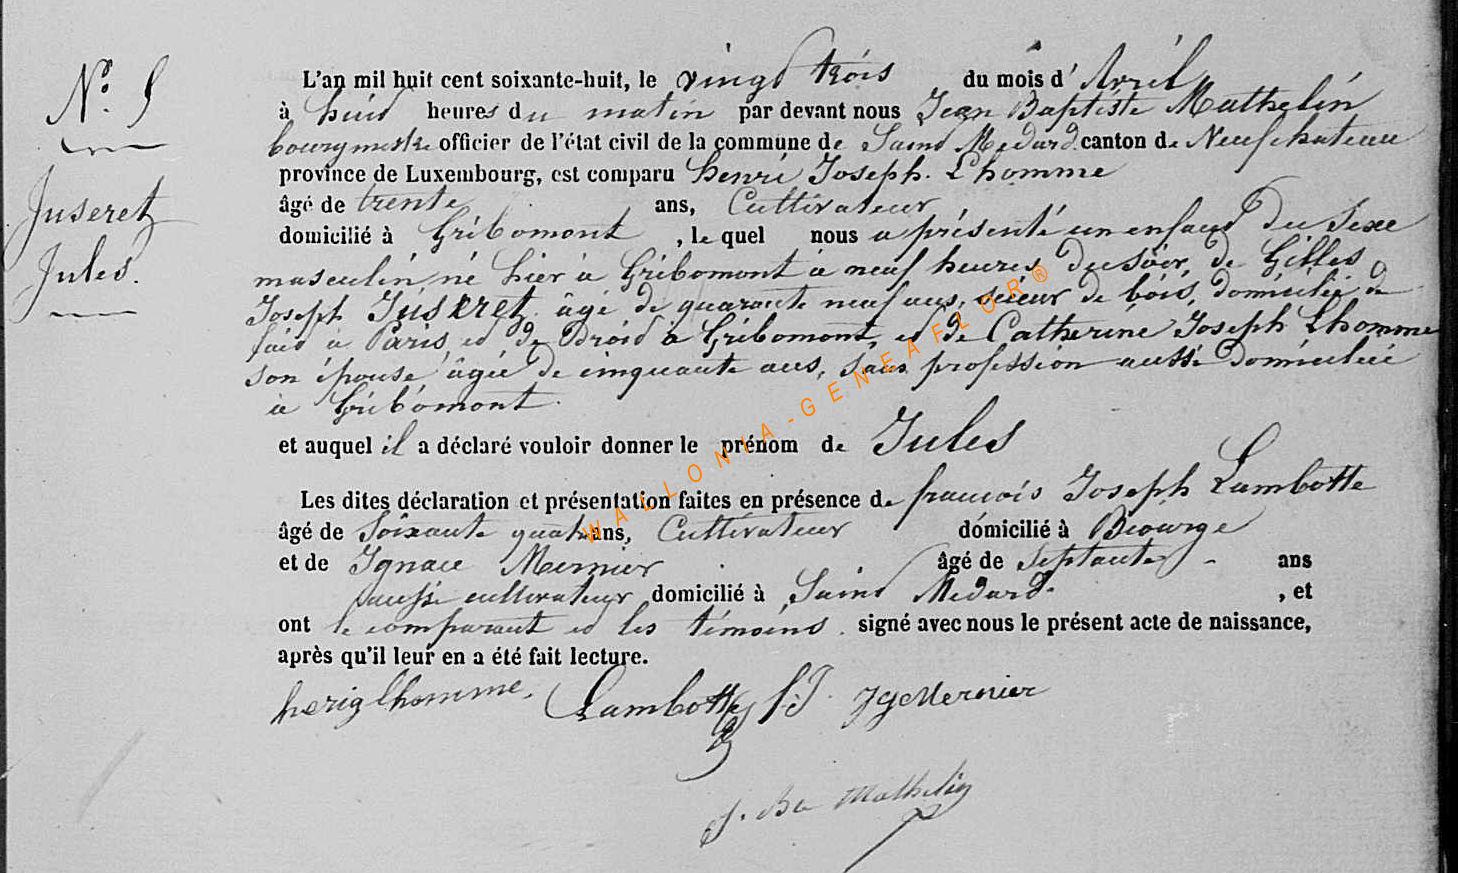 N° 5
Juseret
Jules.
L'an mil huit cent soixante-huit, le vingt trois du mois d' Avril
à huit heures du matin par devant nous Jean Baptiste Mathelin
bourgmestre officier de l'état civil de la commune de Saint Médard canton de Neufchateau
province de Luxembourg, est comparu henri Joseph Lhomme
âgé de trente ans, Cultivateur
domicilié à Gribomont, le quel nous a présenté un enfant du sexe
masculin, né hier à Gribomont à neuf heures du soir, de Gilles
Joseph Juseret âgé de quarante neuf ans, scieur de bois, domicilié de
fait à Paris et de Droit à Gribomont, et de Catherine Joseph Lhomme
son épouse âgée de cinquante ans, sans profession aussi domiciliée
à Gribomont.
et auquel il a déclaré vouloir donner le prénom de Jules
Les dites déclaration et présentation faites en présence de francois Joseph Lambotte
âgé de soixante quatre ans, Cultivateur domicilié à Biourge
et de Ignace Mernier âgé de septante ans
aussi cultivateur domicilié à Saint Médard. , et
ont le comparant et les témoins signé avec nous le présent acte de naissance,
après qu'il leur en a été fait lecture.
herig lhomme. Lambotte f.J. Jg Mernier
J. Bte Mathelin
WALLONIA-GENEAFLOR®